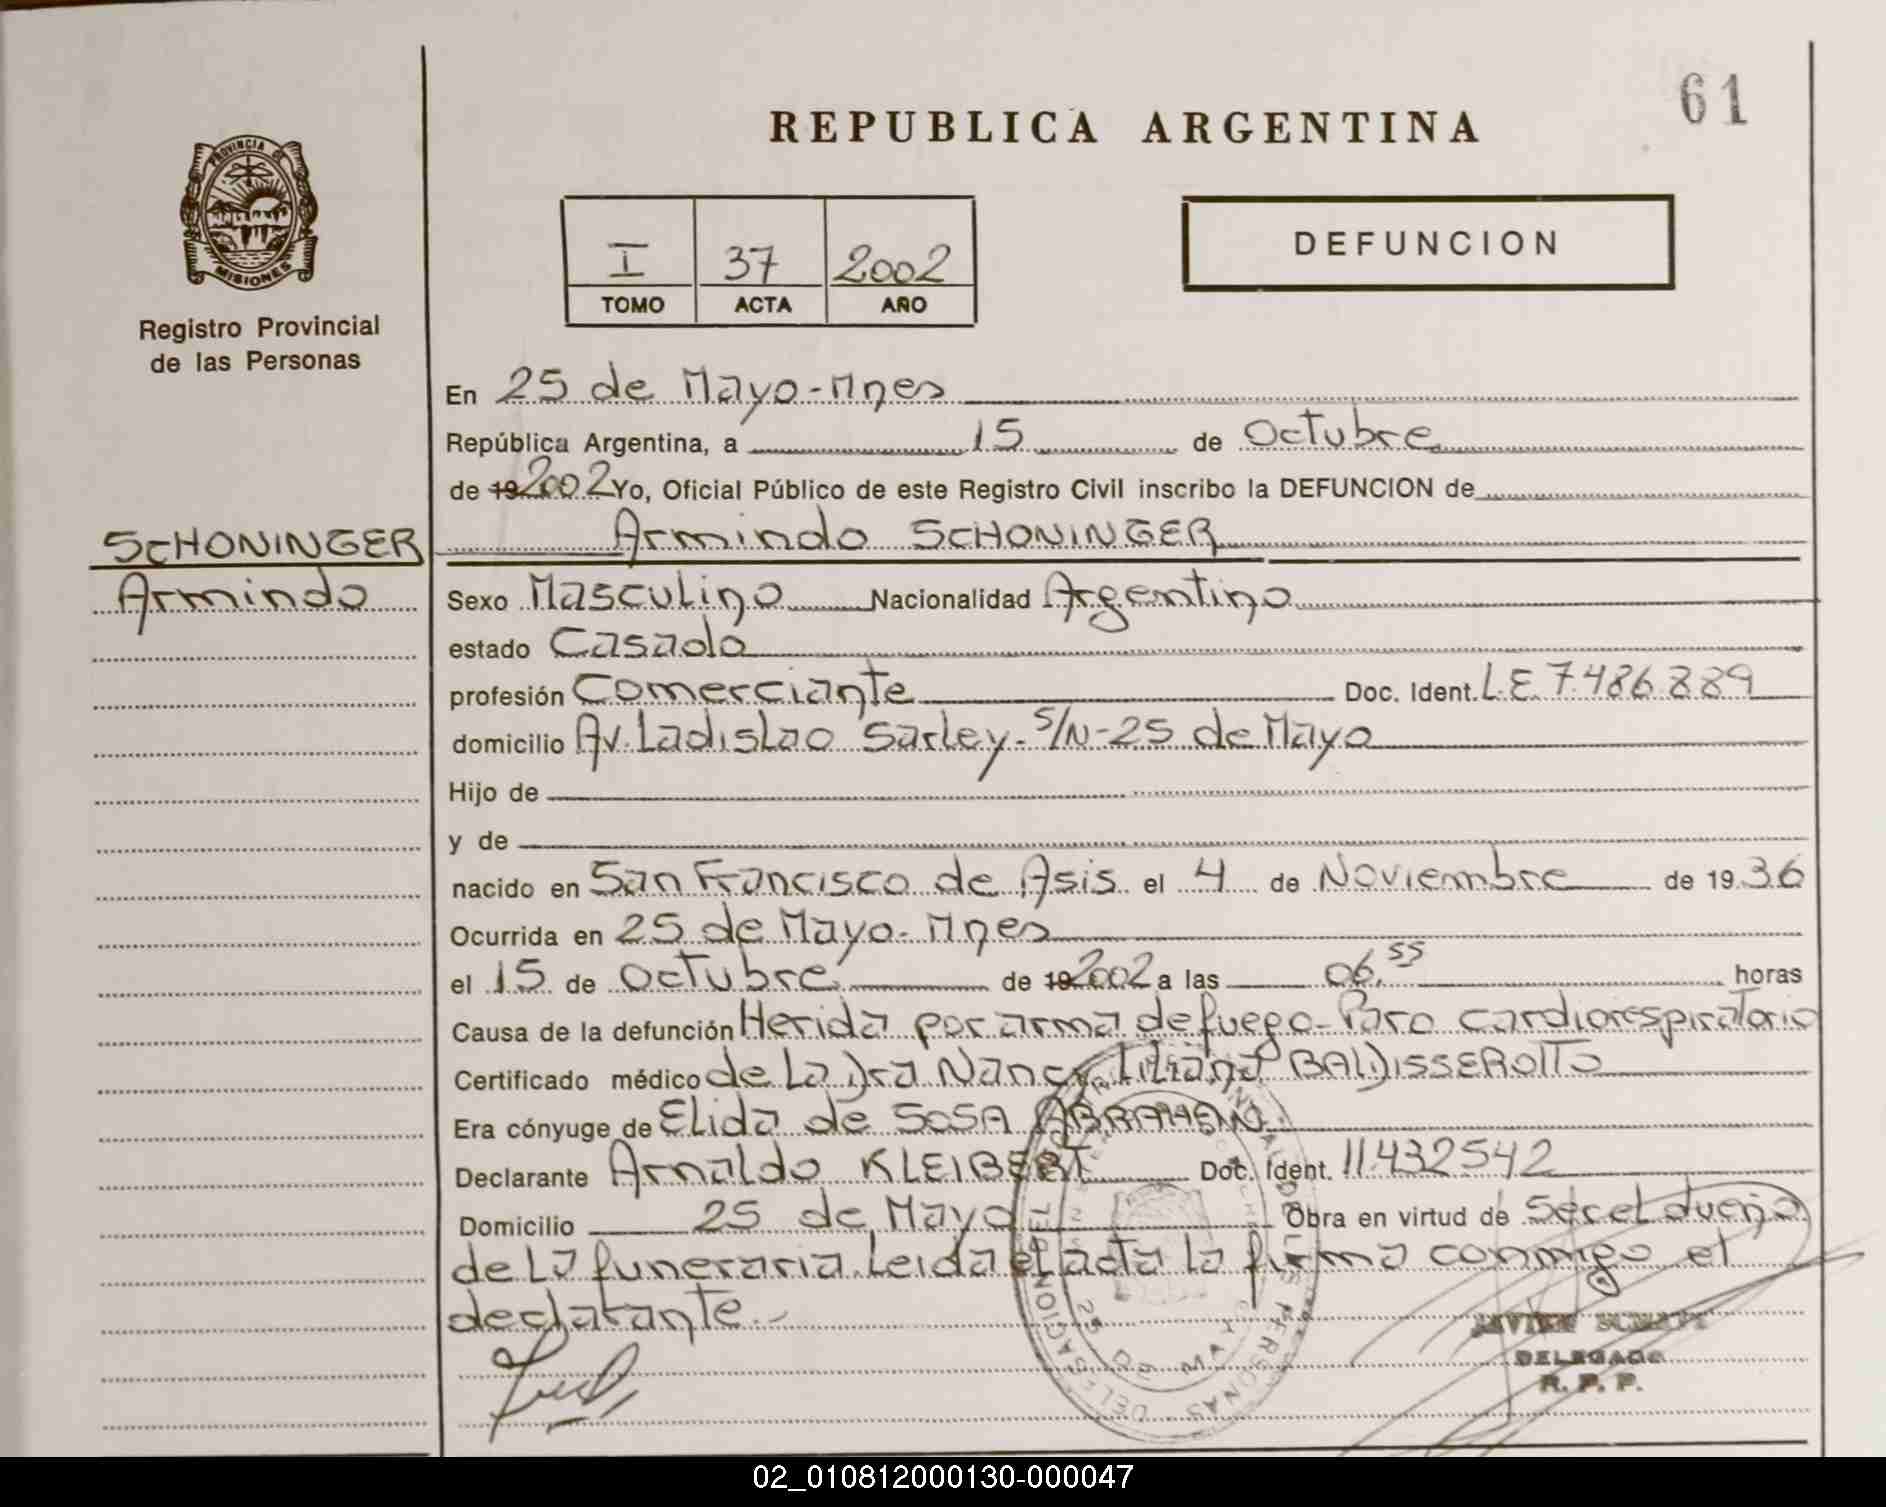 61
REPUBLICA ARGENTINA
PROVINCIA DE
MISIONES
Registro Provincial
de las Personas
I 37 2002
TOMO ACTA AÑO
DEFUNCION
En 25 de Mayo-Mnes
República Argentina, a 15 de Octubre
de 19 2002 Yo, Oficial Público de este Registro Civil inscribo la DEFUNCION de
SCHONINGER
Armindo
Armindo SCHONINGER
Sexo Masculino Nacionalidad Argentino
estado Casado
profesión Comerciante Doc. Ident. L.E. 7.486.889
domicilio Av. Ladislao Sarley - S/N - 25 de Mayo
Hijo de
y de
nacido en San Francisco de Asis el 4 de Noviembre de 19 36
Ocurrida en 25 de Mayo - Mnes
el 15 de Octubre de 19 2002 a las 06,55 horas
Causa de la defunción Herida por arma de fuego - Paro cardiorespiratorio
Certificado médico de La Dra Nancy Liliana BALDISSEROTTO
Era cónyuge de Elida de SOSA ABRAHAN
Declarante Arnaldo KLEIBERT Doc. Ident. 11.432542
Domicilio 25 de Mayo Obra en virtud de Ser el dueño
de La funeraria. Leida el acta la firma conmigo el
declarante.-
DELEGADO
R. P. P.
02_010812000130-000047